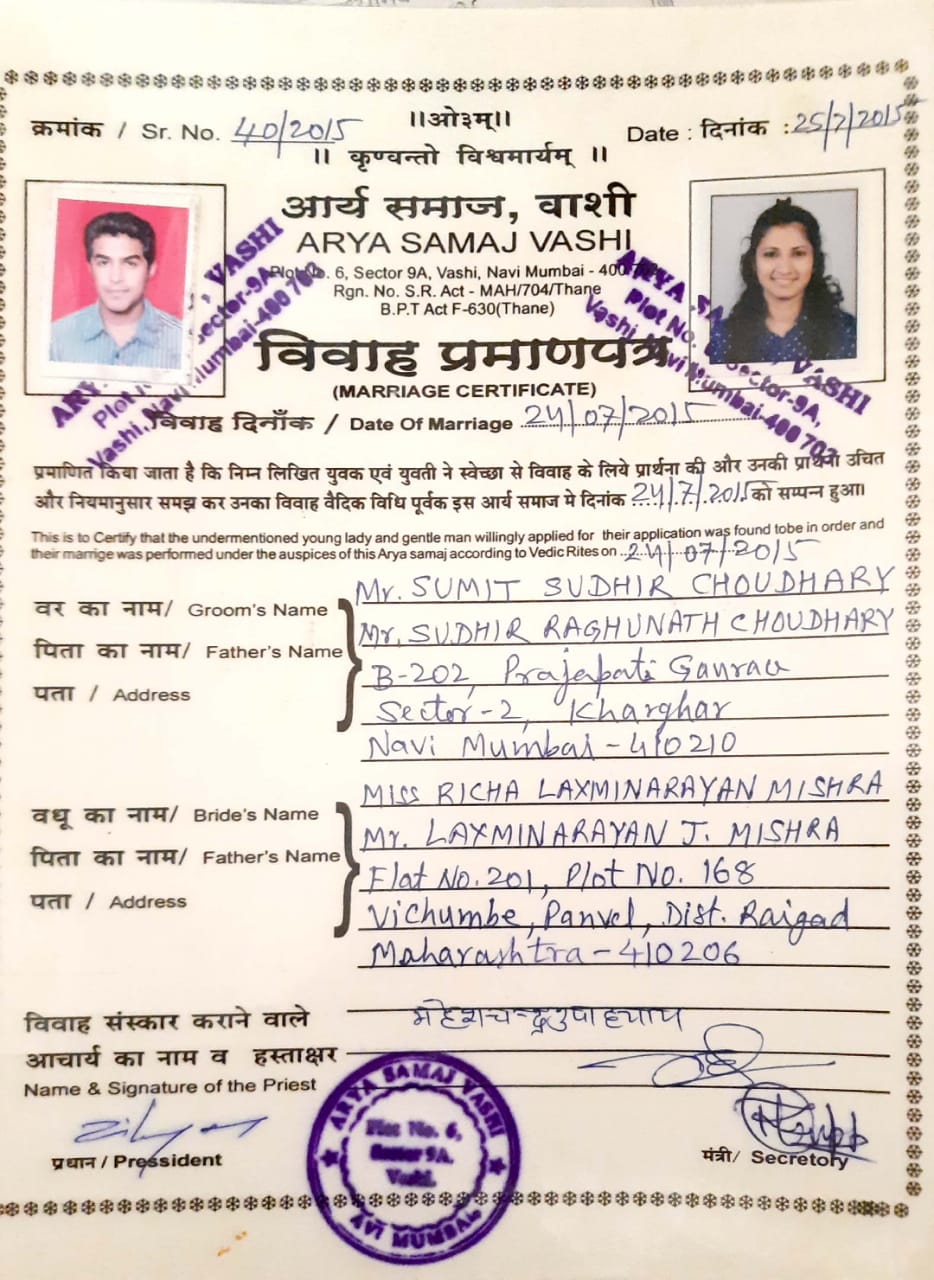 क्रमांक / Sr. No. 40/2015
॥ओ३म्॥
Date : दिनांक : 25/7/2015
॥ कृण्वन्तो विश्वमार्यम् ॥
आर्य समाज, वाशी
ARYA SAMAJ VASHI
Plot No. 6, Sector 9A, Vashi, Navi Mumbai - 400 703
Rgn. No. S.R. Act - MAH/704/Thane
B.P.T Act F-630(Thane)
विवाह प्रमाणपत्र
(MARRIAGE CERTIFICATE)
विवाह दिनाँक / Date Of Marriage 24/07/2015
प्रमाणित किया जाता है कि निम्न लिखित युवक एवं युवती ने स्वेच्छा से विवाह के लिये प्रार्थना की और उनकी प्रार्थना उचित
और नियमानुसार समझ कर उनका विवाह वैदिक विधि पूर्वक इस आर्य समाज मे दिनांक 24/7/2015 को सम्पन्न हुआ।
This is to Certify that the undermentioned young lady and gentle man willingly applied for their application was found tobe in order and
their marrige was performed under the auspices of this Arya samaj according to Vedic Rites on 24/07/2015
वर का नाम/ Groom's Name Mr. SUMIT SUDHIR CHOUDHARY
पिता का नाम/ Father's Name Mr. SUDHIR RAGHUNATH CHOUDHARY
पता / Address B-202, Prajapati Gaurav
Sector-2, Kharghar
Navi Mumbai - 410210
वधू का नाम/ Bride's Name MISS RICHA LAXMINARAYAN MISHRA
पिता का नाम/ Father's Name Mr. LAXMINARAYAN J. MISHRA
पता / Address Flat No. 201, Plot No. 168
Vichumbe, Panvel, Dist. Raigad
Maharashtra - 410206
विवाह संस्कार कराने वाले
आचार्य का नाम व हस्ताक्षर
Name & Signature of the Priest
प्रधान / President
मंत्री/ Secretory
ARYA SAMAJ VASHI
Plot No. 6,
Sector 9A.
Vashi.
NAVI MUMBAI